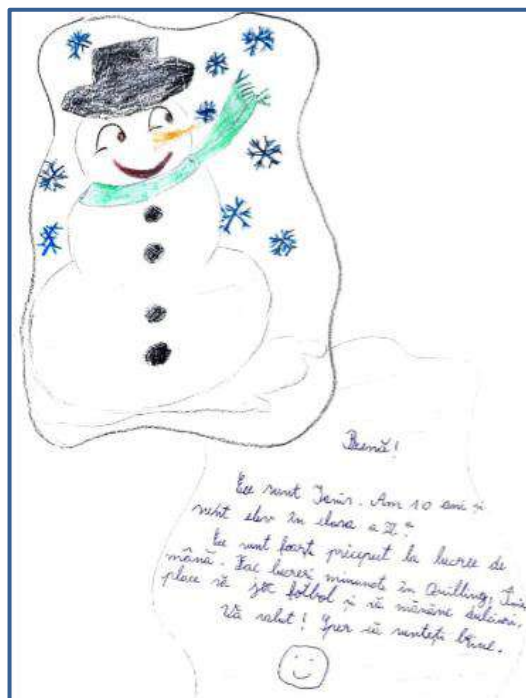 Bună!
Eu sunt Ianis. Am 10 ani și
sunt elev în clasa a II-a
Eu sunt foarte priceput la lucru de
mână. Fac lucrări minunate în Quilling, Îmi
place să joc fotbol și să mănânc dulciuri.
Vă salut! Sper că sunteți bine.